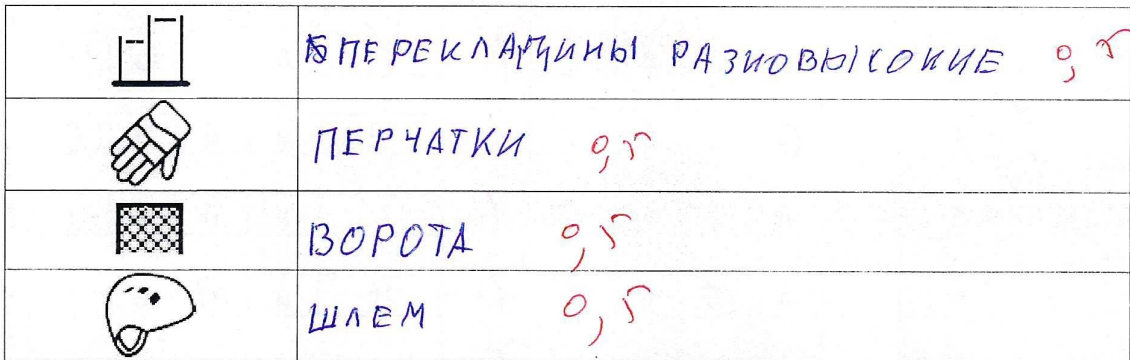 ПЕРЕКЛАДИНЫ РАЗНОВЫСОКИЕ 0,5
ПЕРЧАТКИ 0,5
ВОРОТА 0,5
ШЛЕМ 0,5